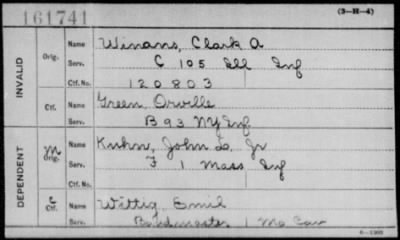 161741
(3-H-4)
INVALID
Orig.
Name Winans, Clark A
Serv. C 105 Ill Inf
Ctf. No. 120803
Ctf.
Name Green Orville
Serv. B 93 NY Inf
DEPENDENT
M
Orig.
Name Kuhn, John L. Jr
Serv. F 1 Mass Inf
Ctf. No.
C
Ctf.
Name Wittig Emil
Serv. Bandmaster 1 Mo Cav